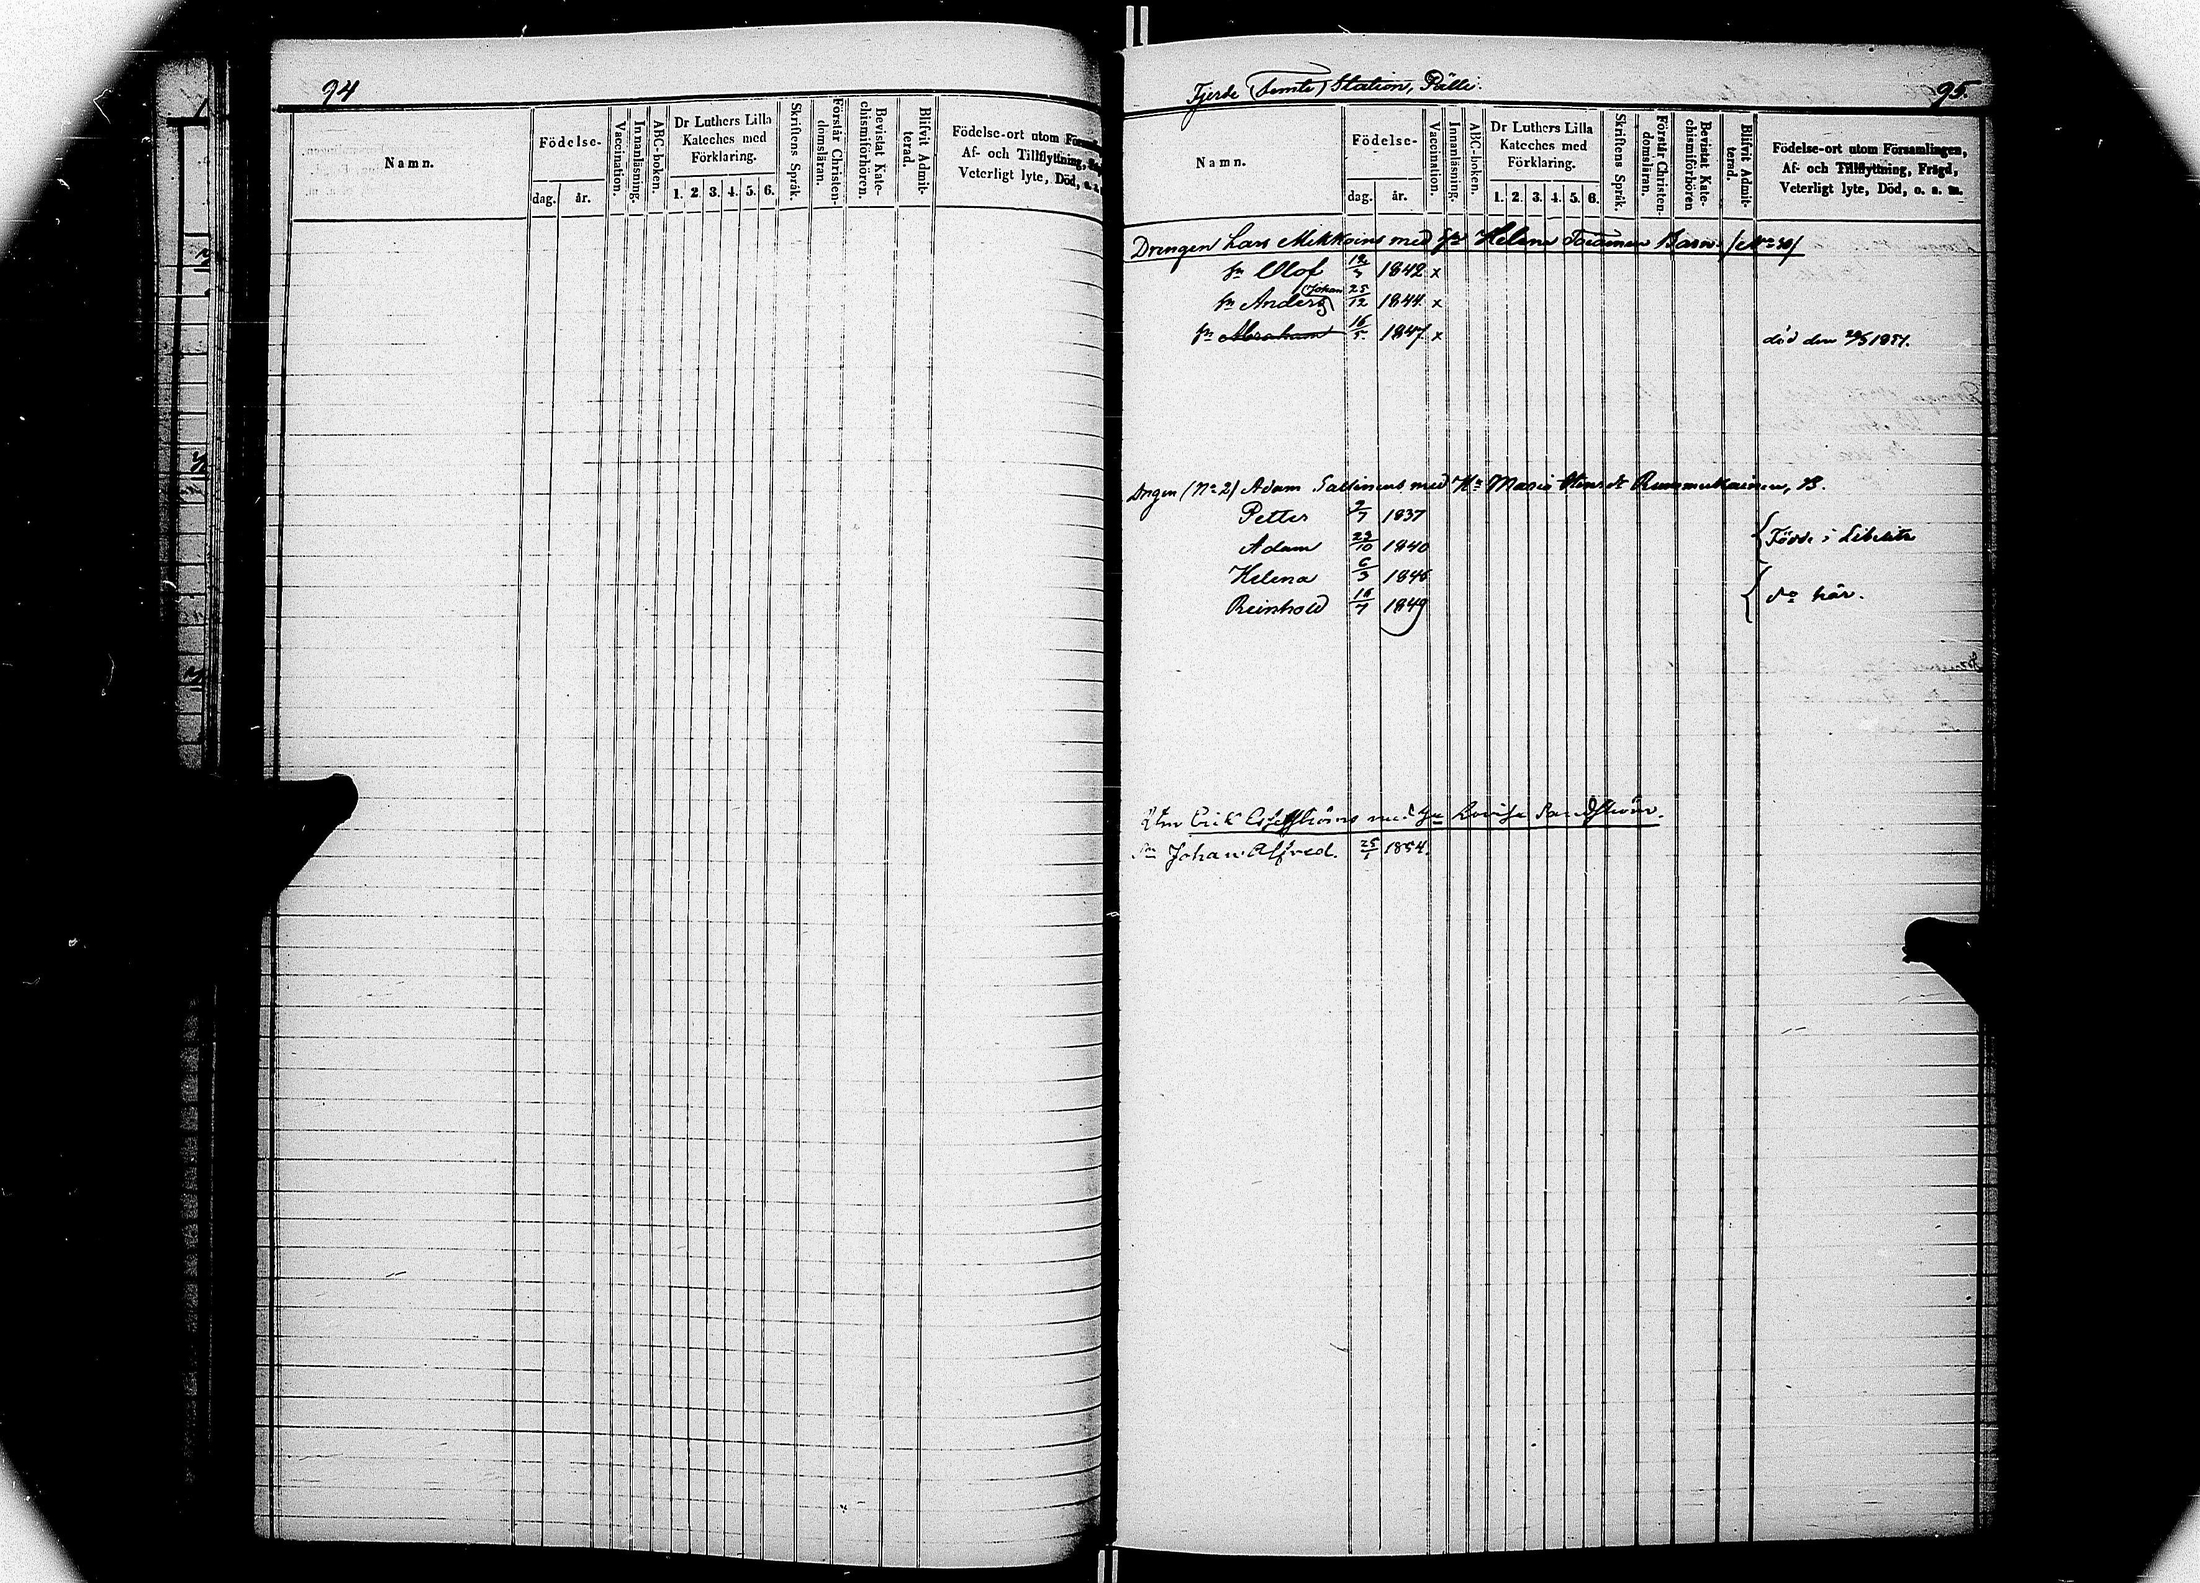 94
Namn.
Födelse-
dag. år.
Vaccination.
Innanläsning.
ABC-boken.
Dr Luthers Lilla
Kateches med
Förklaring.
1. 2. 3. 4. 5. 6.
Skriftens Språk.
Förstår Christen-
domsläran.
Bevistat Kate-
chismiförhören.
Blifvit Admit-
terad.
Födelse-ort utom
Af- och Tillflyttning,
Veterligt lyte, Död,
Fjerde (Femte) Station, Pälli.
95.
Namn.
Födelse-
dag. år.
Vaccination.
Innanläsning.
ABC-boken.
Dr Luthers Lilla
Kateches med
Förklaring.
1. 2. 3. 4. 5. 6.
Skriftens Språk.
Förstår Christen-
domsläran.
Bevistat Kate-
chismiförhören
Blifvit Admit-
terad.
Födelse-ort utom Församlingen,
Af- och Tillflyttning, Frägd,
Veterligt lyte, Död, o. s. m.
Drengen Lars Mikkoins med Helena Barn
Olof 1842 x
Anders (Johan) 25/12 1844 x
Abraham 16/5 1847 x död den
(No 2) Adam med Maria B.
Petter 9/7 1837
Adam 29/10 1840 Födde i Libelits
Helena 6/3 1846
Reinhold 16/7 1849 do här.
Erik med Lovisa
Johan Alfred. 25/1 1854.